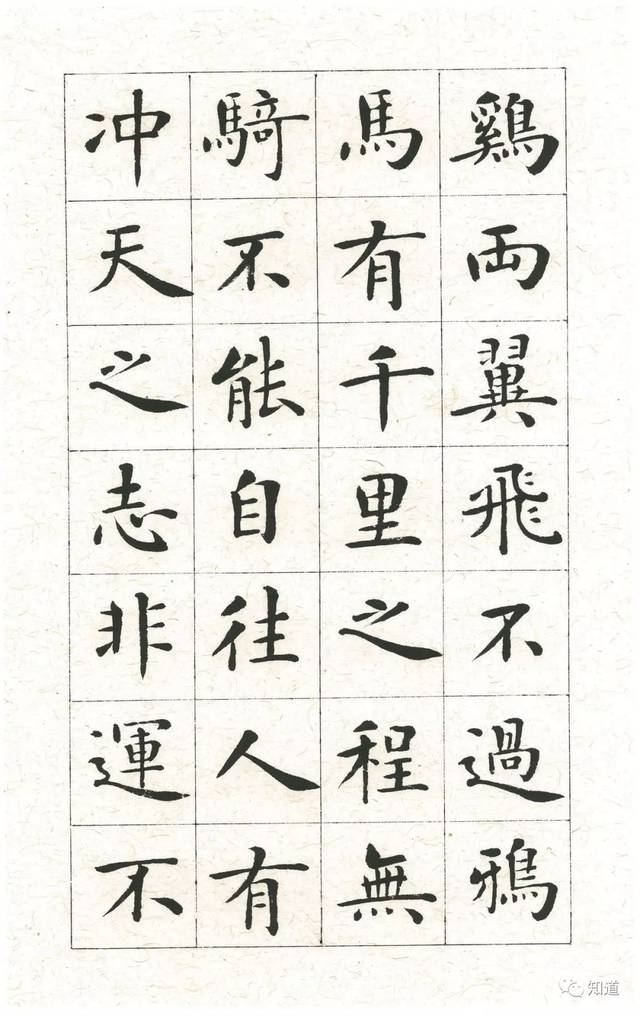 鷄兩翼飛不過鴉
馬有千里之程無
騎不能自往人有
冲天之志非運不
知道